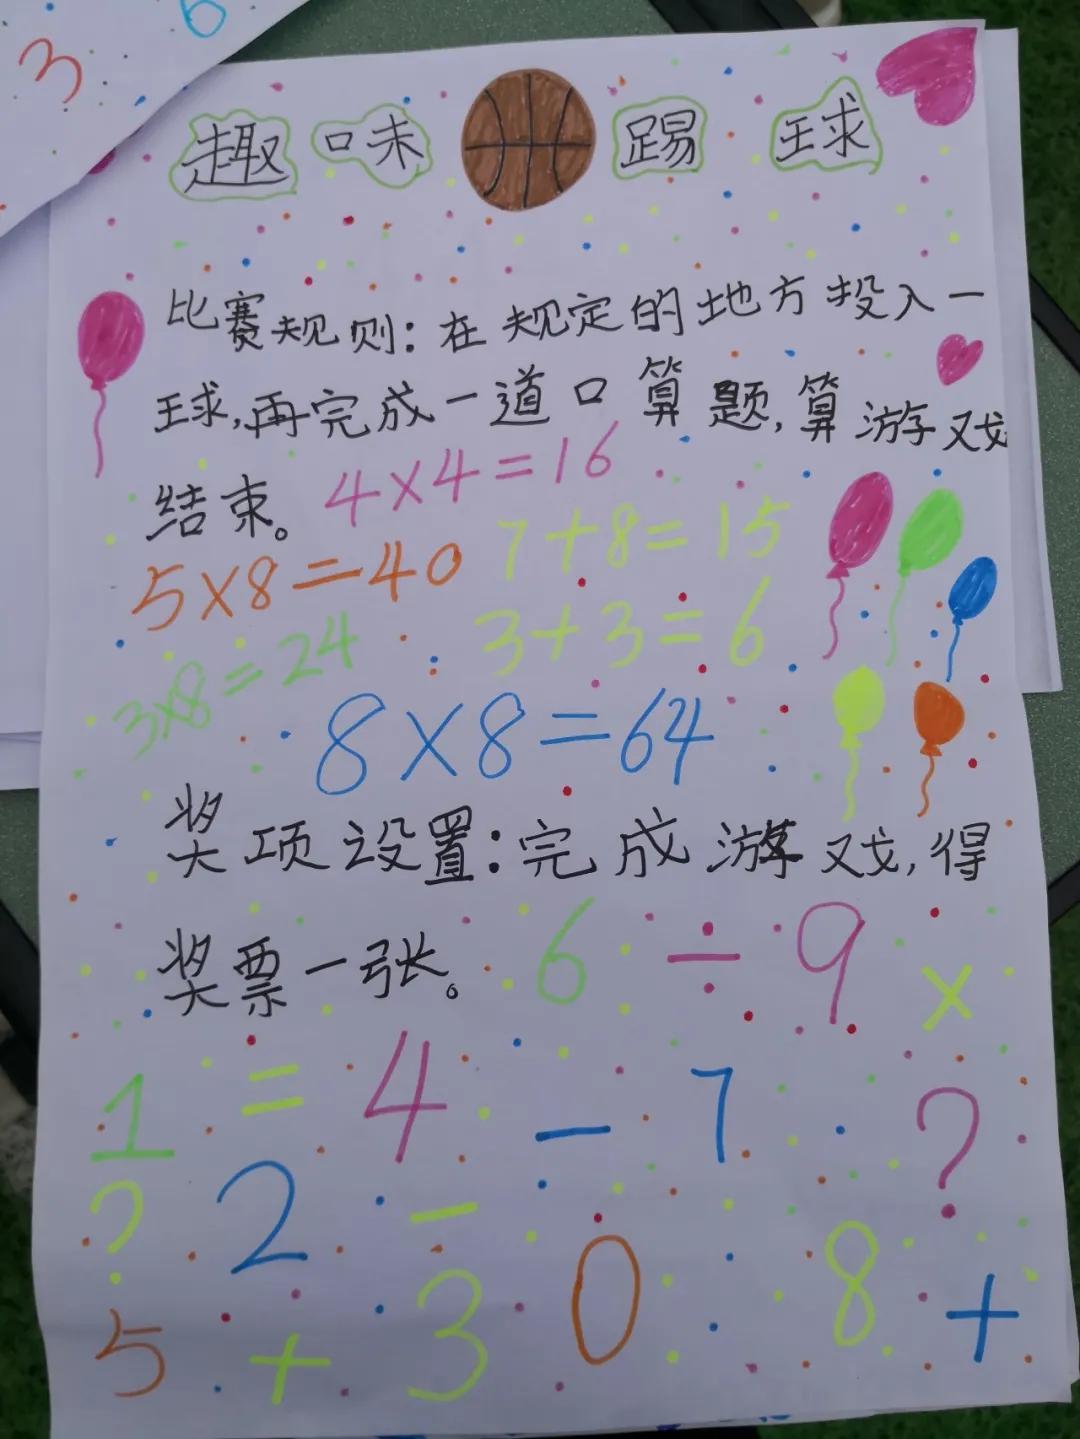 3 6
趣味踢球
比赛规则:在规定的地方投入一
球,再完成一道口算题,算游戏
结束。
4×4=16
5×8=40
7+8=15
3×8=24
3+3=6
8×8=64
奖项设置:完成游戏,得
奖票一张。
6 ÷ 9 ×
1 = 4 - 7 ?
? 2 -
5 + 3 0 8 +